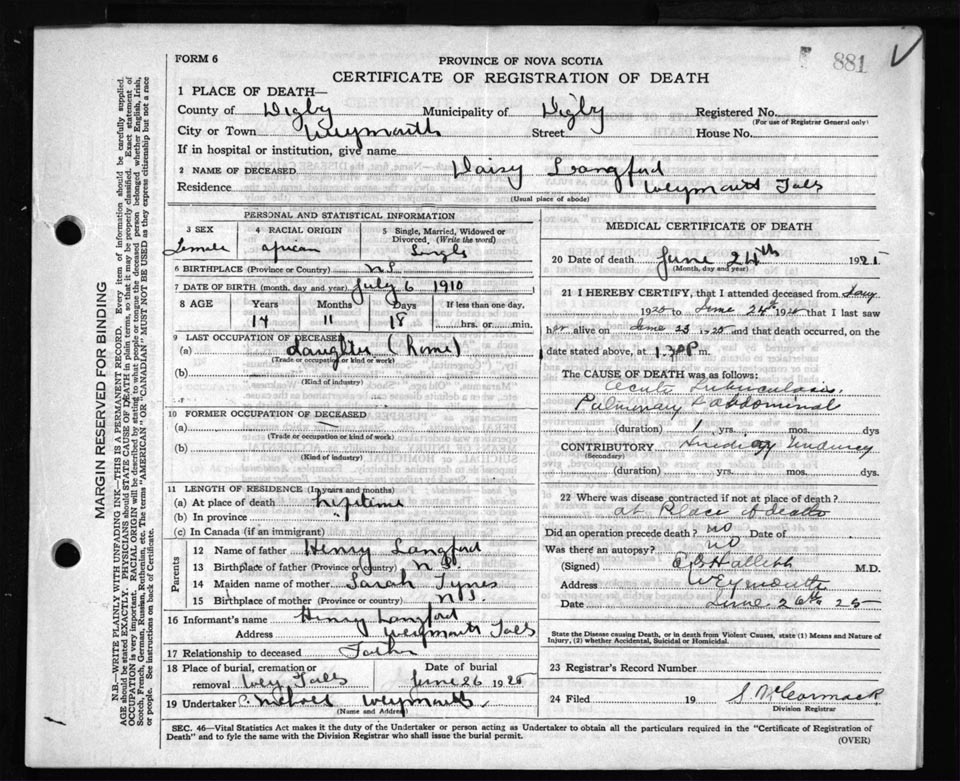 881
FORM 6
PROVINCE OF NOVA SCOTIA
CERTIFICATE OF REGISTRATION OF DEATH
1 PLACE OF DEATH—
County of Digby Municipality of Digby Registered No.
(For use of Registrar General only)
City or Town Weymouth Street House No.
If in hospital or institution, give name
2 NAME OF DECEASED Daisy Langford
Residence Weymouth Falls
(Usual place of abode)
PERSONAL AND STATISTICAL INFORMATION
3 SEX 4 RACIAL ORIGIN 5 Single, Married, Widowed or Divorced, (Write the word)
Female african Single
6 BIRTHPLACE (Province or Country) N.S.
7 DATE OF BIRTH (month, day and year) July 6 1910
8 AGE Years Months Days If less than one day,
14 11 18 hrs. or min.
9 LAST OCCUPATION OF DECEASED
(a) daughter (home)
(Trade or occupation or kind or work)
(b)
(Kind of industry)
10 FORMER OCCUPATION OF DECEASED
(a) —
(Trade or occupation or kind of work)
(b)
(Kind of industry)
11 LENGTH OF RESIDENCE (In years and months)
(a) At place of death lifetime
(b) In province
(c) In Canada (if an immigrant)
Parents
12 Name of father Henry Langford
13 Birthplace of father (Province or country) N.S.
14 Maiden name of mother Sarah Tynes
15 Birthplace of mother (Province or country) N.S.
16 Informant's name Henry Langford
Address Weymouth Falls
17 Relationship to deceased Father
18 Place of burial, cremation or removal Wey Falls Date of burial June 26 1925
19 Undertaker Weymouth
(Name and Address)
MEDICAL CERTIFICATE OF DEATH
20 Date of death June 24th 1925
(Month, day and year)
21 I HEREBY CERTIFY, that I attended deceased from
1925 to June 24th 1925 that I last saw
her alive on June 23 1925 and that death occurred, on the
date stated above, at 1.30 P m.
The CAUSE OF DEATH was as follows:
Acute Tuberculosis
Pulmonary & abdominal
(duration) 1 yrs. mos. dys
CONTRIBUTORY
(Secondary)
(duration) yrs. mos. dys.
22 Where was disease contracted if not at place of death?
at Place of death
Did an operation precede death? no Date of
Was there an autopsy? no
(Signed) M.D.
Address Weymouth
Date June 26th 25
State the Disease causing Death, or in death from Violent Causes, state (1) Means and Nature of
Injury, (2) whether Accidental, Suicidal or Homicidal.
23 Registrar's Record Number
24 Filed 19 S. McCormack
Division Registrar
SEC. 46—Vital Statistics Act makes it the duty of the Undertaker or person acting as Undertaker to obtain all the particulars required in the "Certificate of Registration of
Death" and to fyle the same with the Division Registrar who shall issue the burial permit.
(OVER)
MARGIN RESERVED FOR BINDING
N.B.—WRITE PLAINLY WITH UNFADING INK—THIS IS A PERMANENT RECORD. Every item of information should be carefully supplied.
AGE should be stated EXACTLY. PHYSICIANS should STATE CAUSE OF DEATH in plain terms, so that it may be properly classified. Exact statement of
OCCUPATION is very important. RACIAL ORIGIN will be described by stating to what people or tongue the deceased person belonged whether English, Irish,
Scotch, French, German, Russian, Ruthenian, etc. The terms "AMERICAN" OR "CANADIAN" MUST NOT BE USED as they express citizenship but not a race
or people. See instructions on back of Certificate.